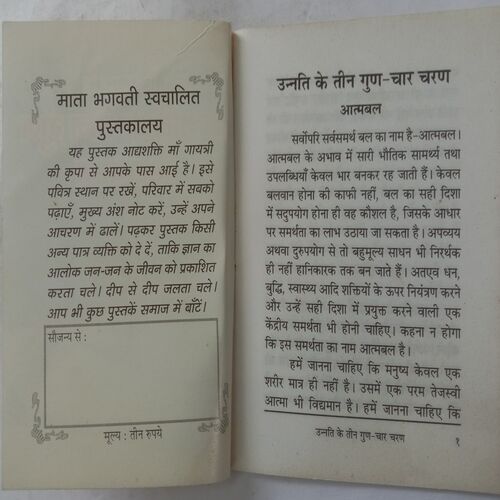 माता भगवती स्वचालित
पुस्तकालय
यह पुस्तक आद्यशक्ति माँ गायत्री
की कृपा से आपके पास आई है। इसे
पवित्र स्थान पर रखें, परिवार में सबको
पढ़ाएँ, मुख्य अंश नोट करें, उन्हें अपने
आचरण में ढालें। पढ़कर पुस्तक किसी
अन्य पात्र व्यक्ति को दे दें, ताकि ज्ञान का
आलोक जन-जन के जीवन को प्रकाशित
करता चले। दीप से दीप जलता चले।
आप भी कुछ पुस्तकें समाज में बाँटें।
सौजन्य से :
मूल्य : तीन रुपये
उन्नति के तीन गुण-चार चरण
आत्मबल
सर्वोपरि सर्वसमर्थ बल का नाम है-आत्मबल।
आत्मबल के अभाव में सारी भौतिक सामर्थ्य तथा
उपलब्धियाँ केवल भार बनकर रह जाती हैं। केवल
बलवान होना की काफी नहीं, बल का सही दिशा
में सदुपयोग होना ही वह कौशल है, जिसके आधार
पर समर्थता का लाभ उठाया जा सकता है। अपव्यय
अथवा दुरुपयोग से तो बहुमूल्य साधन भी निरर्थक
ही नहीं हानिकारक तक बन जाते हैं। अतएव धन,
बुद्धि, स्वास्थ्य आदि शक्तियों के ऊपर नियंत्रण करने
और उन्हें सही दिशा में प्रयुक्त करने वाली एक
केंद्रीय समर्थता भी होनी चाहिए। कहना न होगा
कि इस समर्थता का नाम आत्मबल है।
हमें जानना चाहिए कि मनुष्य केवल एक
शरीर मात्र ही नहीं है। उसमें एक परम तेजस्वी
आत्मा भी विद्यमान है। हमें जानना चाहिए कि
उन्नति के तीन गुण-चार चरण
१